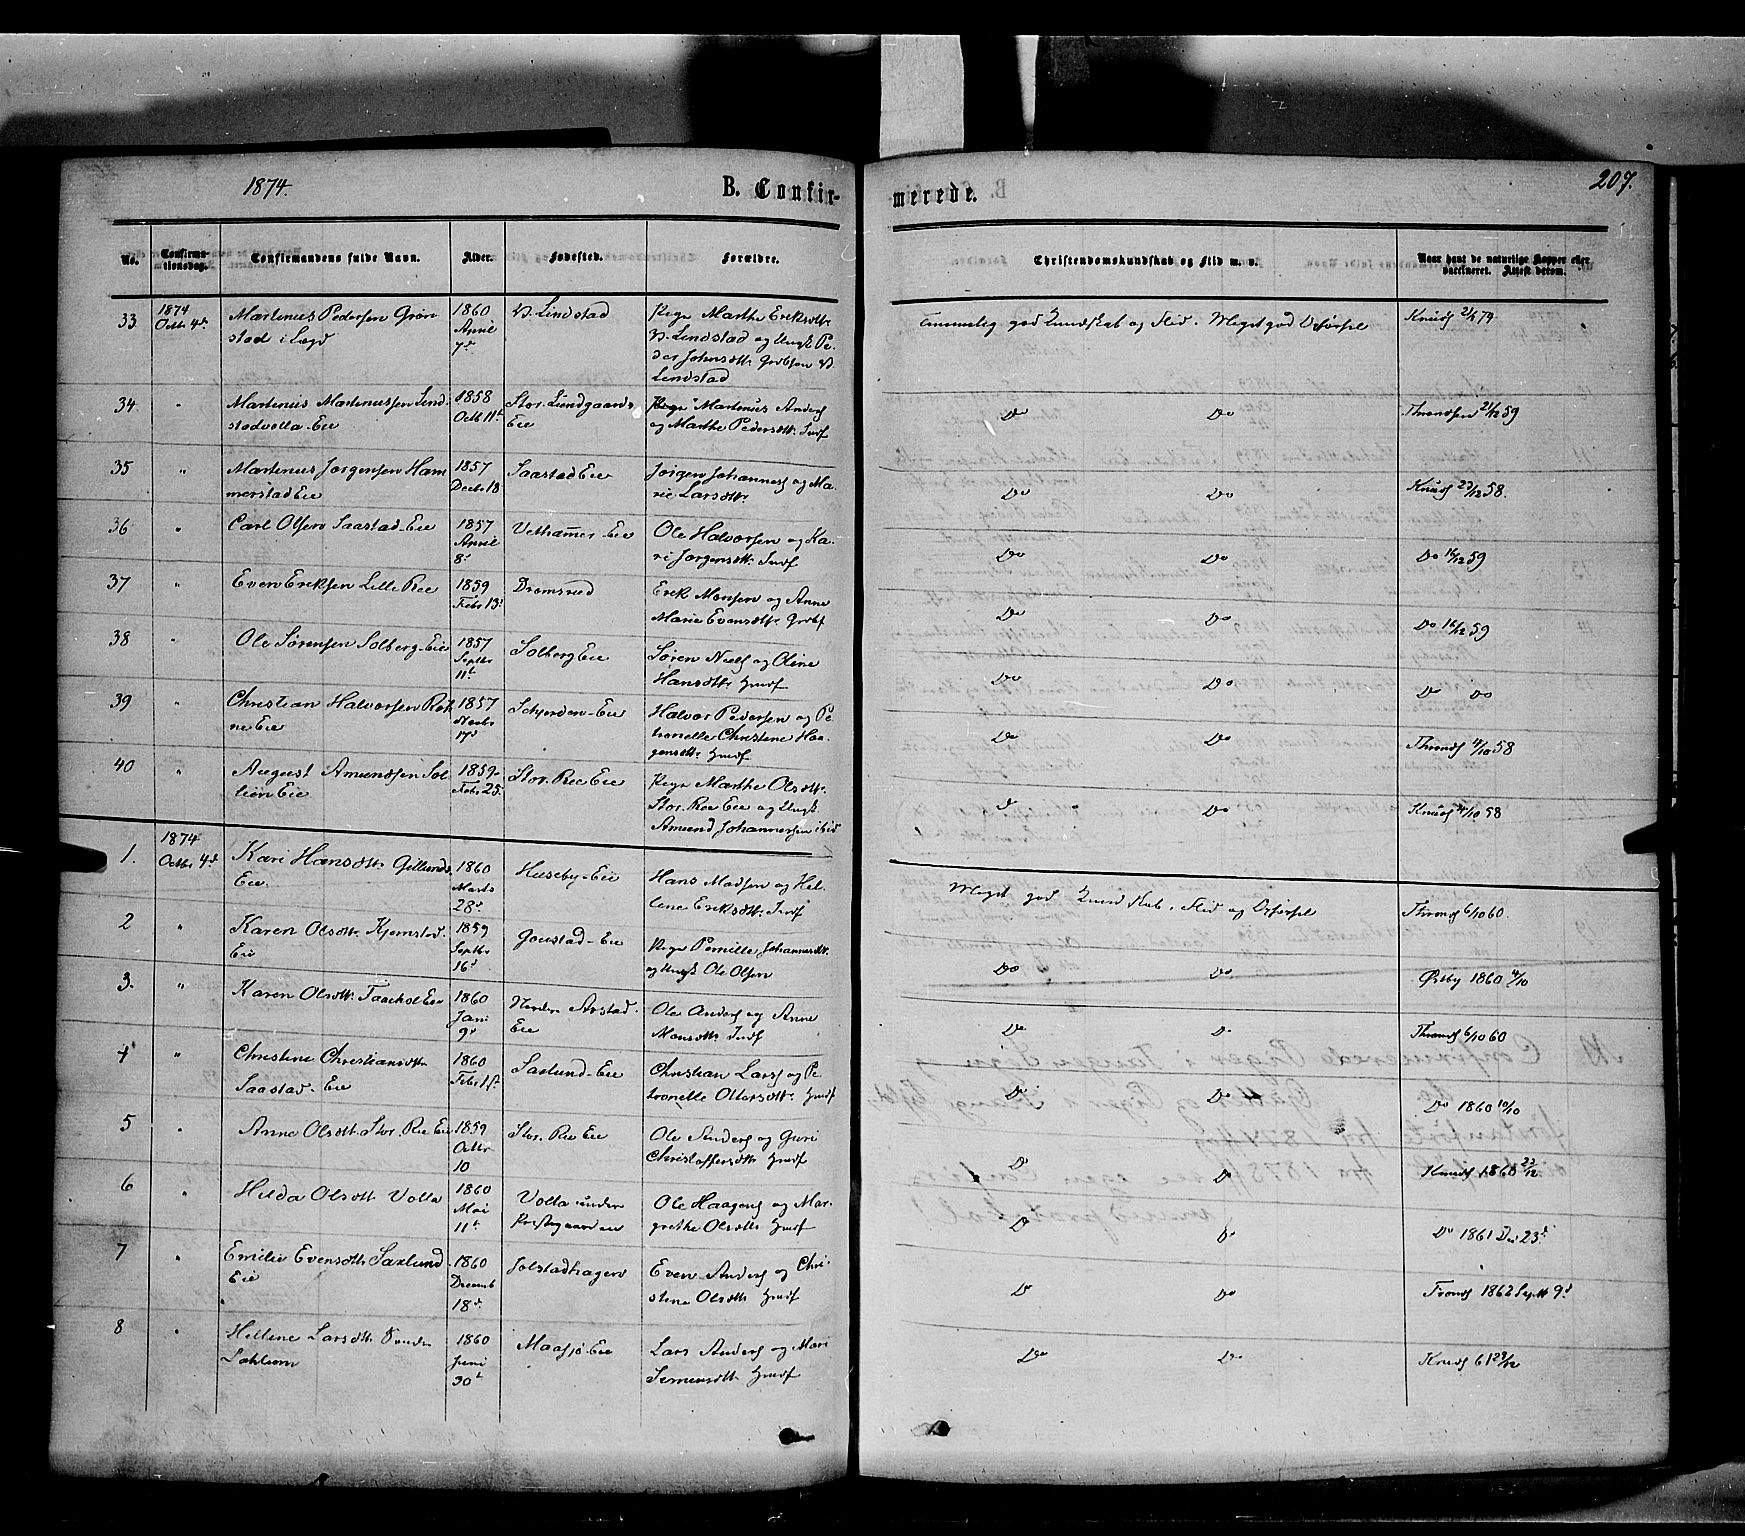 1874.
B. Confir-
merede.
207.
No.
Confirma-
tionsdag.
Confirmandens fulde Navn.
Alder.
Fødested.
Forældre.
Christendomskundskab og Flid m. v.
Naar havt de naturlige Kopper eller
vaccineret. Attest derom.
33
1874
Octbr 4de
Martinus Pedersen Grøn
stad i Lægd
1860
April
7d
N. Lindstad
Pige Marthe Eriksdttr
N. Lindstad og Ungk Pe
der Johnsdttr Grøbsen N
Lindstad
Temmelig god Kundskab og Flid. Meget god Opførsel
34
"
Martinus Martinussen Lind
stadvolla-Eie
1858
Octb 11t
Stor. Lundgaards
Eie
Martinus Anders
og Marthe Pedersdttr Indf
Do
Do
Throndsen 21/12 59
35
"
Martinus Jørgensen Ham
merstad Eie
1857
Decbr 18
Saastad Eie
Jørgen Johannes og Ma
rie Larsdttr
Do
Do
Knuds 23/12 58.
36
"
Carl Olsen Saastad-Eie
1857
April
8d
Vethammer-Eie
Ole Halvorsen og Ka
ri Jørgensdttr Indf
Do
Do
Do 16/12 59
37
"
Even Eriksen Lille Ree
1859
Febr 13d
Dromsrud
Erik Monsen og Anne
Marie Evensdttr
Do
Do
Do 16/12 59
38
"
Ole Sørensen Solberg-Eie
1857
Septbr
11t
Solberg Eie
Søren Niels og Oline
Hansdttr Hmdf
Do
Do
Do Do
39
"
Christian Halvorsen Rot
ne Eie
1857
Novbr
17d
Schjnden-Eie
Halvor Pedersen og Pe
tronelle Christine Haa
gensdttr Hmdf
Do
Do
Thronds 4/10 58
40
"
August Amundsen Sol
lien Eie
1859
Febr 25.
Stor. Ree Eie
Pige Marthe Olsdttr
Stor. Ree Eie og Ungk
Amund Johannessen ibid
Do
Knuds 4/10 58
1.
1874
Octbr 4de
Kari Hansdttr Gillunds
Eie.
1860
Marts
28d
Huseby-Eie
Hans Madsen og Hel
lene Eriksdttr Indf
Meget god Kundskab, Flid og Opførsel
Thronds 6/10 60.
2
"
Karen Olsdttr Kjemstad.
Eie
1859
Septbr
16d
Goustad-Eie
Pige Pernille Johannesdttr
og Ungk Ole Olsen
Do
Do
Østby 1860 4/10
3.
"
Karen Olsdttr Taachol Eie
1860
Jani
9d
Nordre Arstad.
Eie
Ole Anders og Anne
Monsdttr Indf
Do
Do
Thronds 6/10 60
4
"
Christine Christiansdttr
Saastad-Eie
1860
Febr 1st
Saxlund-Eie
Christian Lars og Pe
tronelle Ottersdttr Hmdf
Do
Do
Do 1860 10/10
5
"
Anne Olsdttr Stor. Ree Eie
1859
Octbr
10
Stor. Ree Eie
Ole Anders og Guri
Christoffersdttr Hmdf
Do
Do
Knuds 1860 22/12
6
"
Hilda Olsdttr Volla
1860
Mai
11t
Volla under
Præstegaarden
Ole Haagens og Mar
grethe Olsdttr Hmdf
Do
Do
Do 1861 Dec 23d
7
"
Emilie Evensdttr Saxlund
Eie
1860
Decemb
18d
Solstadhagen
Even Anders og Chri
stine Olsdttr Hmdf
Do
Do
Tronds 1862 Septb 9d
8
"
Hellene Larsdttr Søndre
Løkhem
1860
Juni
30t
Maasjø Eie
Lars Anders og Mari
Simensdttr Hmdf
Do
Do
Knuds 61 29/12